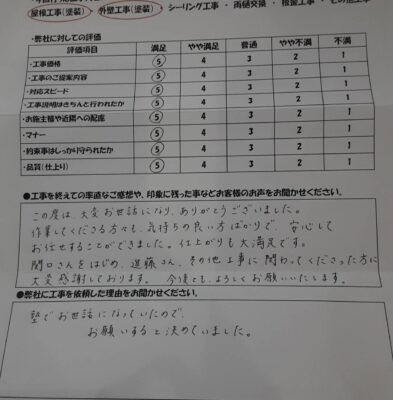 屋根工事(塗装) ・ 外壁工事(塗装) ・ シーリング工事 ・ 雨樋交換 ・ 板金工事 ・ その他工事
・弊社に対しての評価
評価項目 満足 やや満足 普通 やや不満 不満
・工事価格 5 4 3 2 1
・工事のご提案内容 5 4 3 2 1
・対応スピード 5 4 3 2 1
・工事説明はきちんと行われたか 5 4 3 2 1
・お施主様や近隣への配慮 5 4 3 2 1
・マナー 5 4 3 2 1
・約束事はしっかり守られたか 5 4 3 2 1
・品質(仕上り) 5 4 3 2 1
●工事を終えての率直なご感想や、印象に残った事などお客様のお声をお聞かせください。
この度は、大変お世話になり、ありがとうございました。
作業してくださる方々も、気持ちの良い方ばかりで、安心して
お任せすることができました。仕上がりも大満足です。
関口さんをはじめ、進藤さん、その他工事に関わってくださった方に
大変感謝しております。今後とも、よろしくお願いいたします。
●弊社に工事を依頼した理由をお聞かせください。
塾でお世話になっていたので、
お願いすると決めていました。